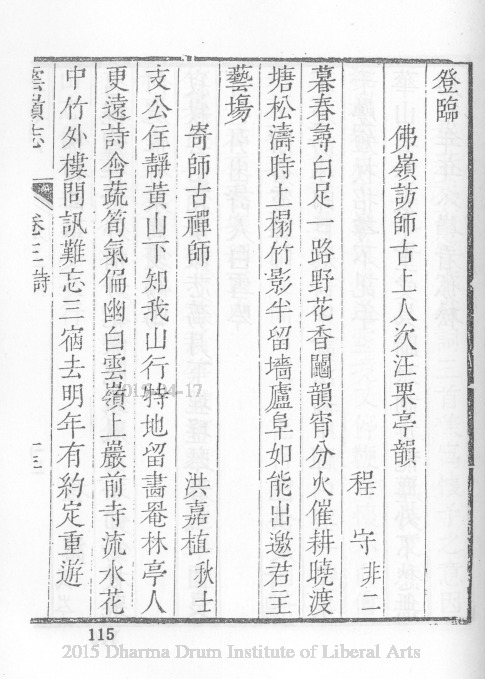 登臨
佛嶺訪師古上人次汪栗亭韻
程 守 非二
暮春尋白足一路野花香鬭韻宵分火催耕曉渡
塘松濤時上榻竹影半留墻廬阜如能出邀君主
藝塲
寄師古禪師 洪嘉植 秋士
支公住靜黃山下知我山行特地留畵罨林亭人
更遠詩含蔬筍氣偏幽白雲嶺上巖前寺流水花
中竹外樓問訊難忘三宿去明年有約定重遊
雲嶺志 卷三詩
115
2015-04-17
2015 Dharma Drum Institute of Liberal Arts